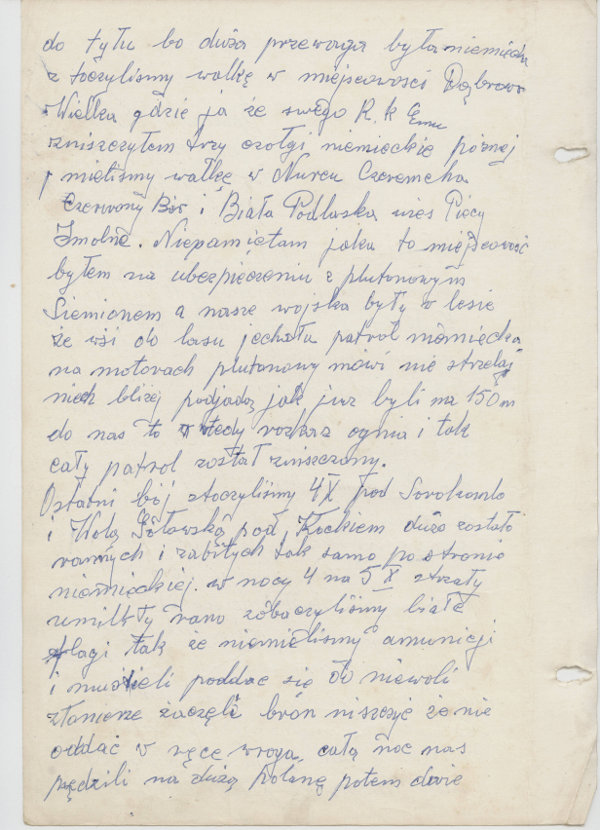 do tyłu bo duża przewaga była niemiecka
stoczylismy walkę w miejscowości Dąbrowa
Wielka gdzie ja ze swego R. K Emu
zniszczyłem trzy czołgi niemieckie późnej
mieliśmy walkę w Nurcu Czeremcha
Czerwony Bór i Biała Podlaska wieś Piecy
Smolne. Niepamiętam jaka to miejscowość
byłem na ubezpieczeniu z plutonowym
Siemionem a nasze wojska były w lesie
że wśi do lasu jechału patrol niemiecka
na motorach plutonowy mówi nie strzelaj
niech bliżej podjadą jak już byli na 150 m
do nas to wtedy rozkaz ognia i tak
cały patrol został zniszczony.
Ostatni bój stoczyliśmy 4 X pod
i Wolą Gółowską pod Kockiem dużo zostało
rannych i zabitych tak samo po stronie
niemieckiej. w nocy 4 na 5 X strzały
umilkły rano zobaczyliśmy białe
flagi tak że niemieliśmy amunicji
i musieli poddac się do niewoli
żołnierze zaczęli broń niszczyć że nie
oddać w ręce wroga, całą noc nas
pędzili na dużą polanę potem dwie